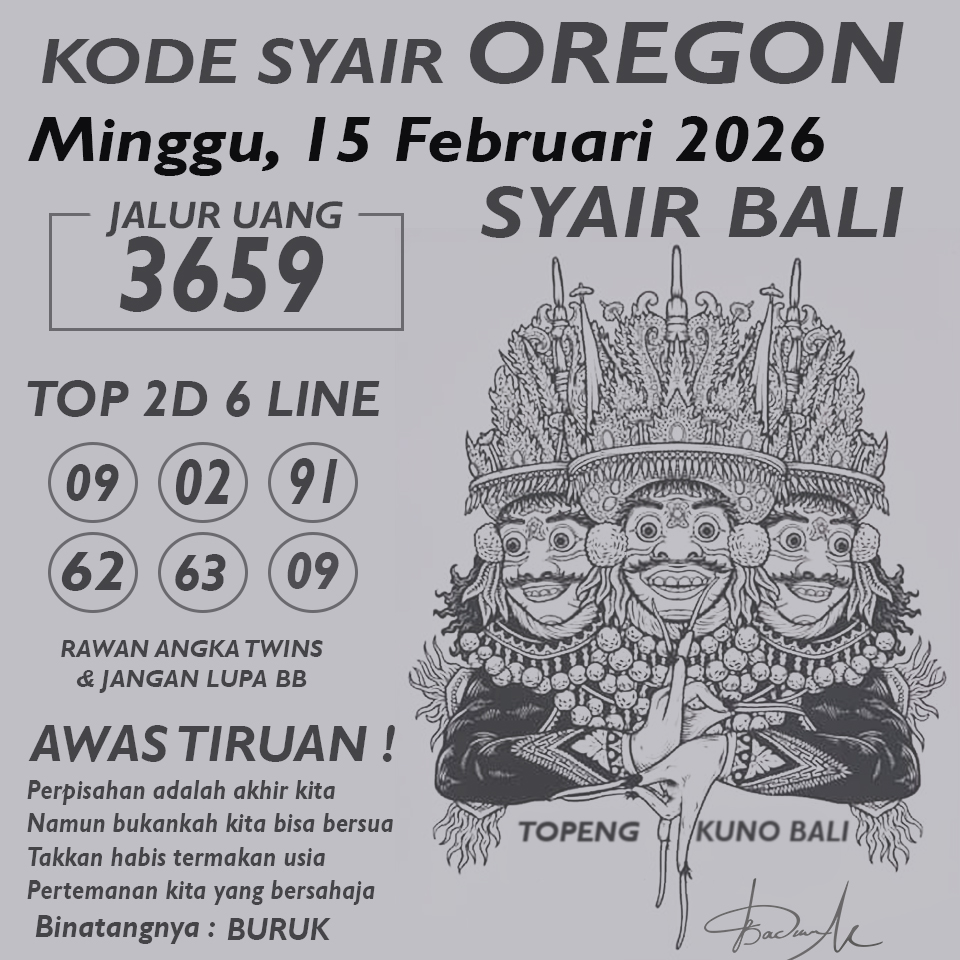 KODE SYAIR OREGON
Minggu, 15 Februari 2026
SYAIR BALI
JALUR UANG
3659
TOP 2D 6 LINE
09 02 91
62 63 09
RAWAN ANGKA TWINS
& JANGAN LUPA BB
AWAS TIRUAN !
Perpisahan adalah akhir kita
Namun bukankah kita bisa bersua
Takkan habis termakan usia
Pertemanan kita yang bersahaja
Binatangnya : BURUK
TOPENG KUNO BALI